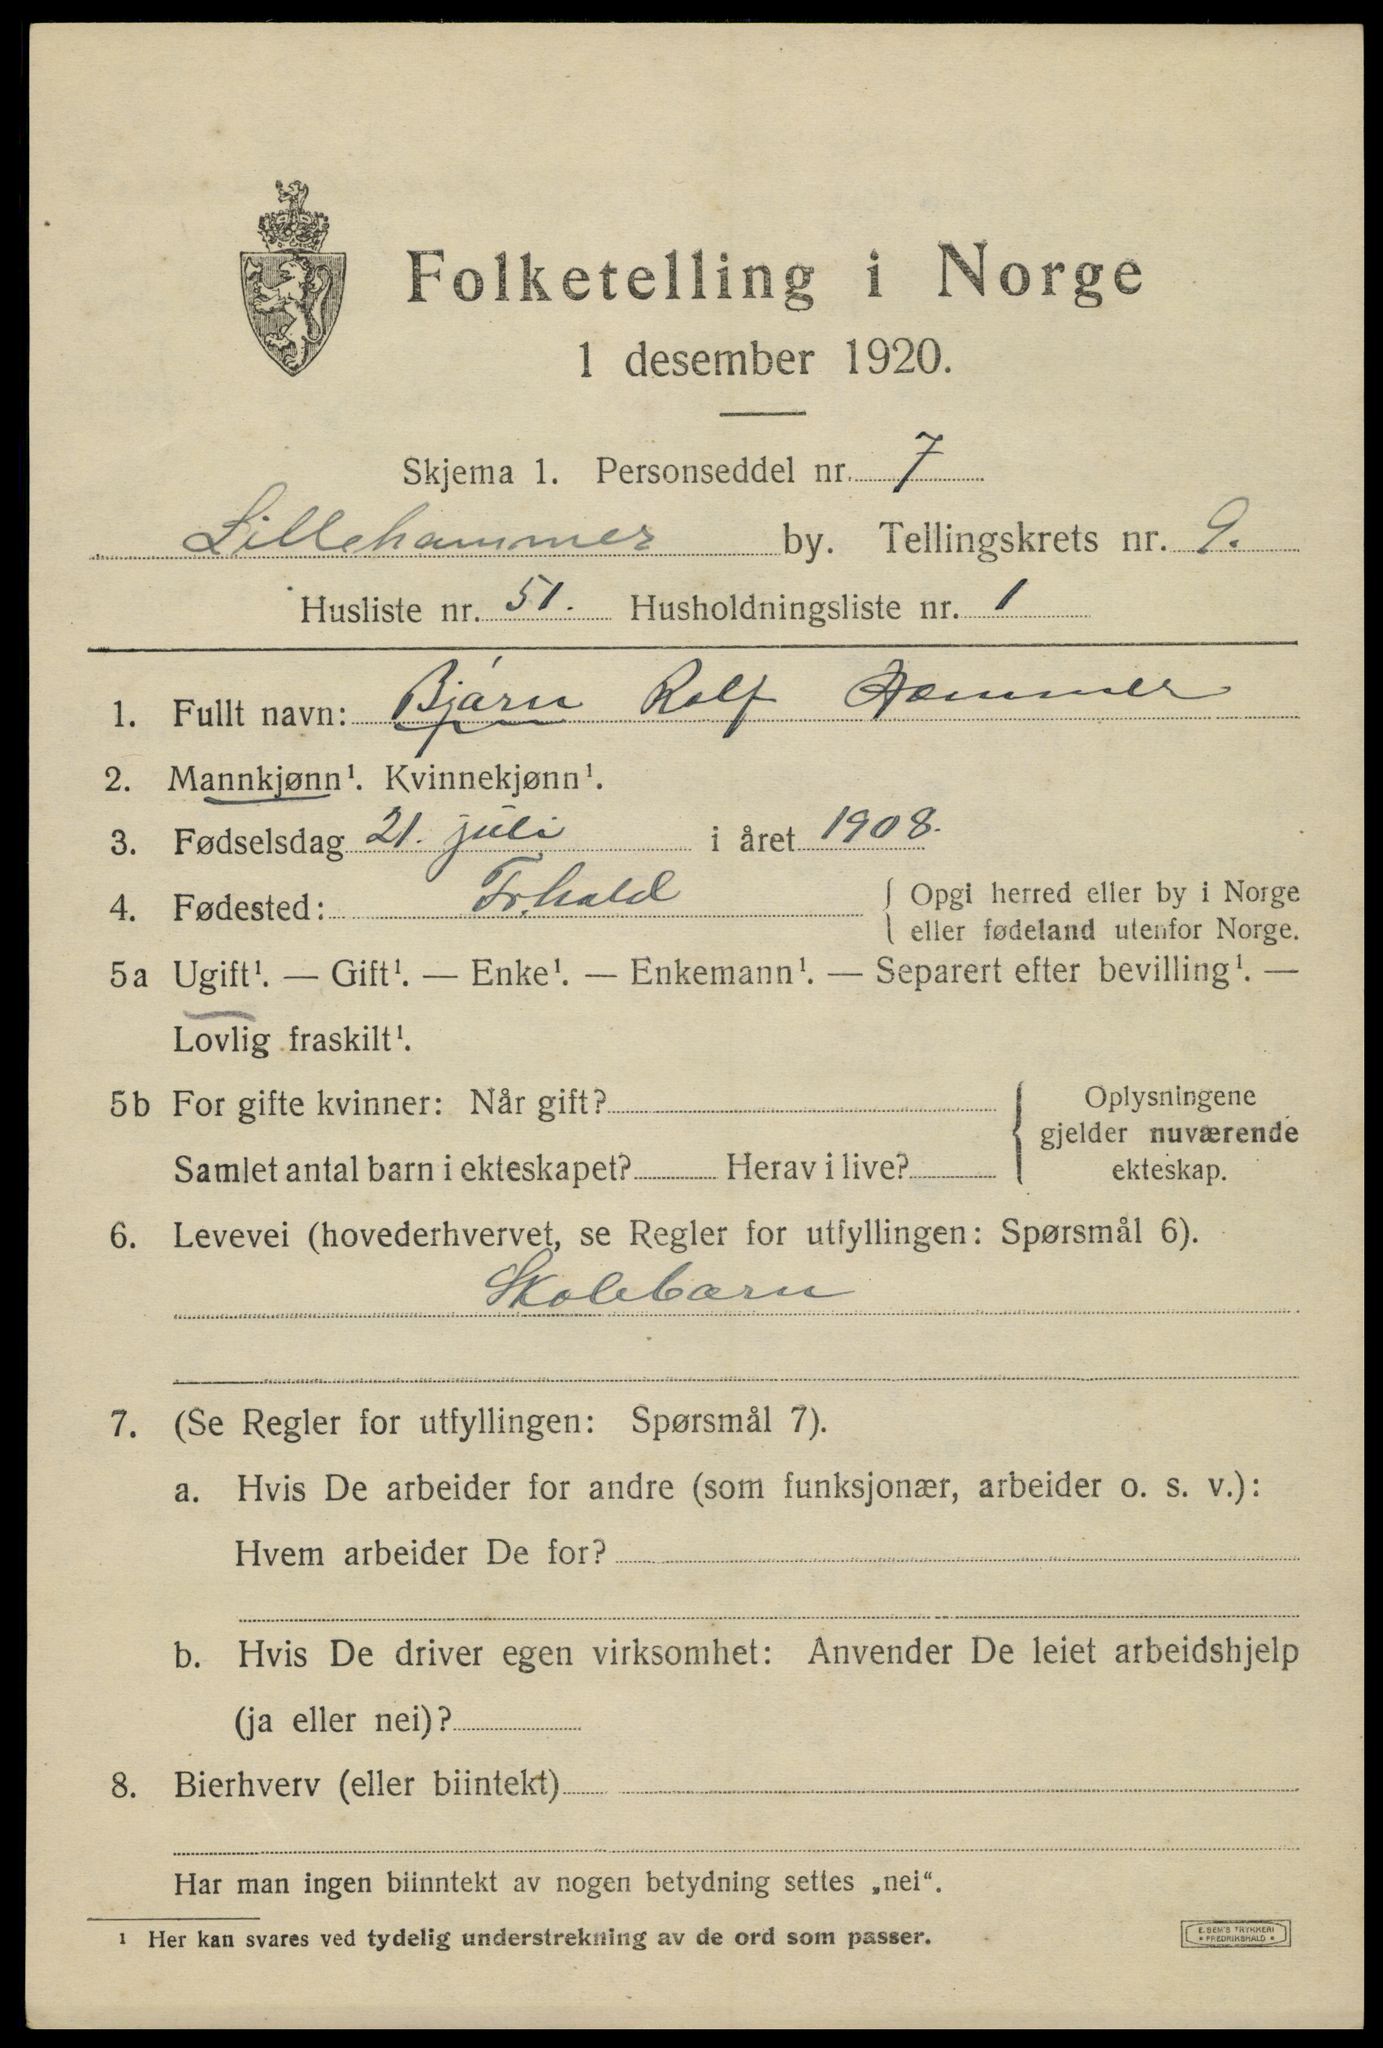 Folketelling i Norge
1 desember 1920.
Skjema 1. Personseddel nr. 7
Lillehammer by. Tellingskrets nr. 9.
Husliste nr. 51. Husholdningsliste nr. 1
1. Fullt navn: Bjørn Rolf Hammer
2. Mannkjønn¹. Kvinnekjønn¹.
3. Fødselsdag 21. juli i året 1908.
4. Fødested: Fr.hald { Opgi herred eller by i Norge
eller fødeland utenfor Norge.
5a Ugift¹. — Gift¹. — Enke¹. — Enkemann¹. — Separert efter bevilling¹. —
Lovlig fraskilt¹.
5b For gifte kvinner: Når gift? { Oplysningene
gjelder nuværende
Samlet antal barn i ekteskapet? Herav i live? ekteskap.
6. Levevei (hovederhvervet, se Regler for utfyllingen: Spørsmål 6).
Skolebarn
7. (Se Regler for utfyllingen: Spørsmål 7).
a. Hvis De arbeider for andre (som funksjonær, arbeider o. s. v.):
Hvem arbeider De for?
b. Hvis De driver egen virksomhet: Anvender De leiet arbeidshjelp
(ja eller nei)?
8. Bierhverv (eller biintekt)
Har man ingen biinntekt av nogen betydning settes „nei“.
¹ Her kan svares ved tydelig understrekning av de ord som passer.
E. SEM'S TRYKKERI
* FREDRIKSHALD *